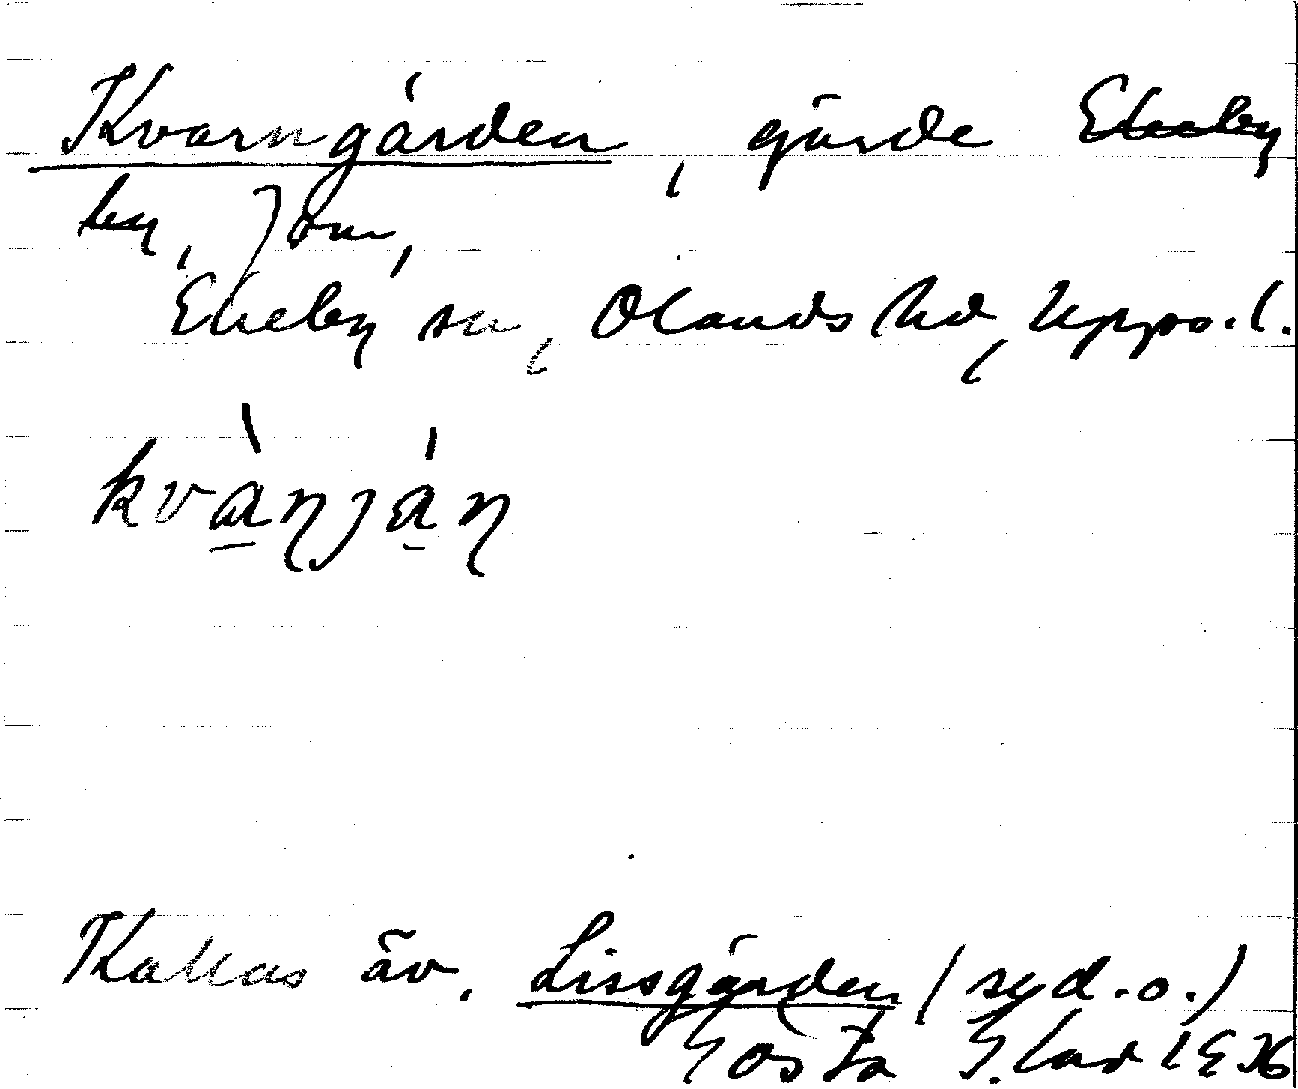 Kvarngården, gärde Ekeby
by,
Ekeby sn, Olands hd, Upps. l.
kvànján
Kallas äv. Lissgården (se d. o.)
Gösta